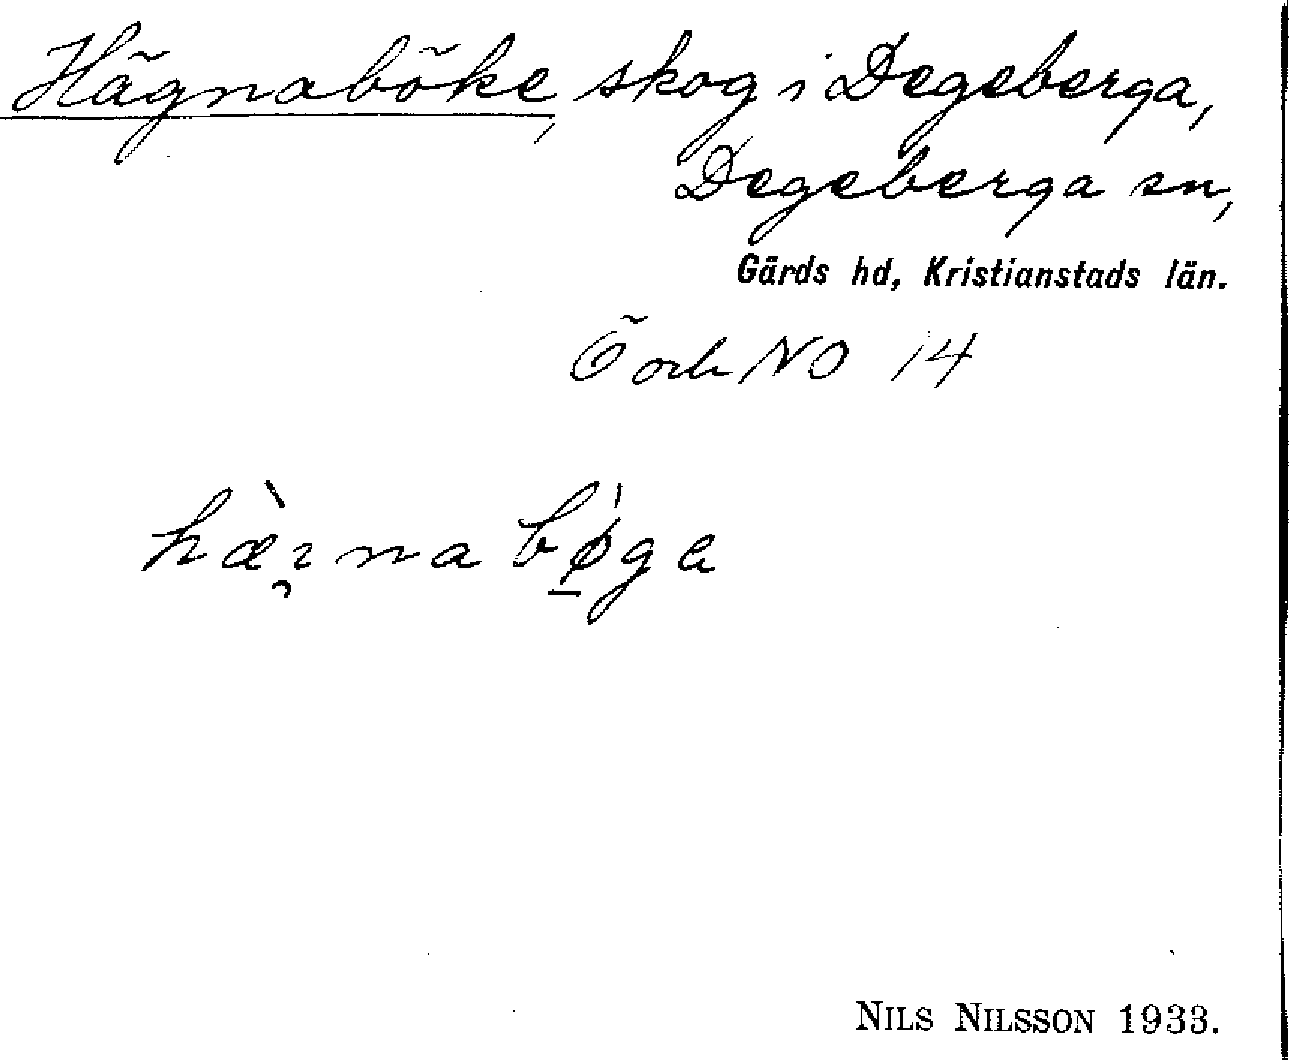 Hägnaböke, skog i Degeberga,
Degeberga sn,
Gärds hd, Kristianstads län.
Ö och NO 14
hæ̀ꝛna bǿ̱ga
NILS NILSSON 1933.